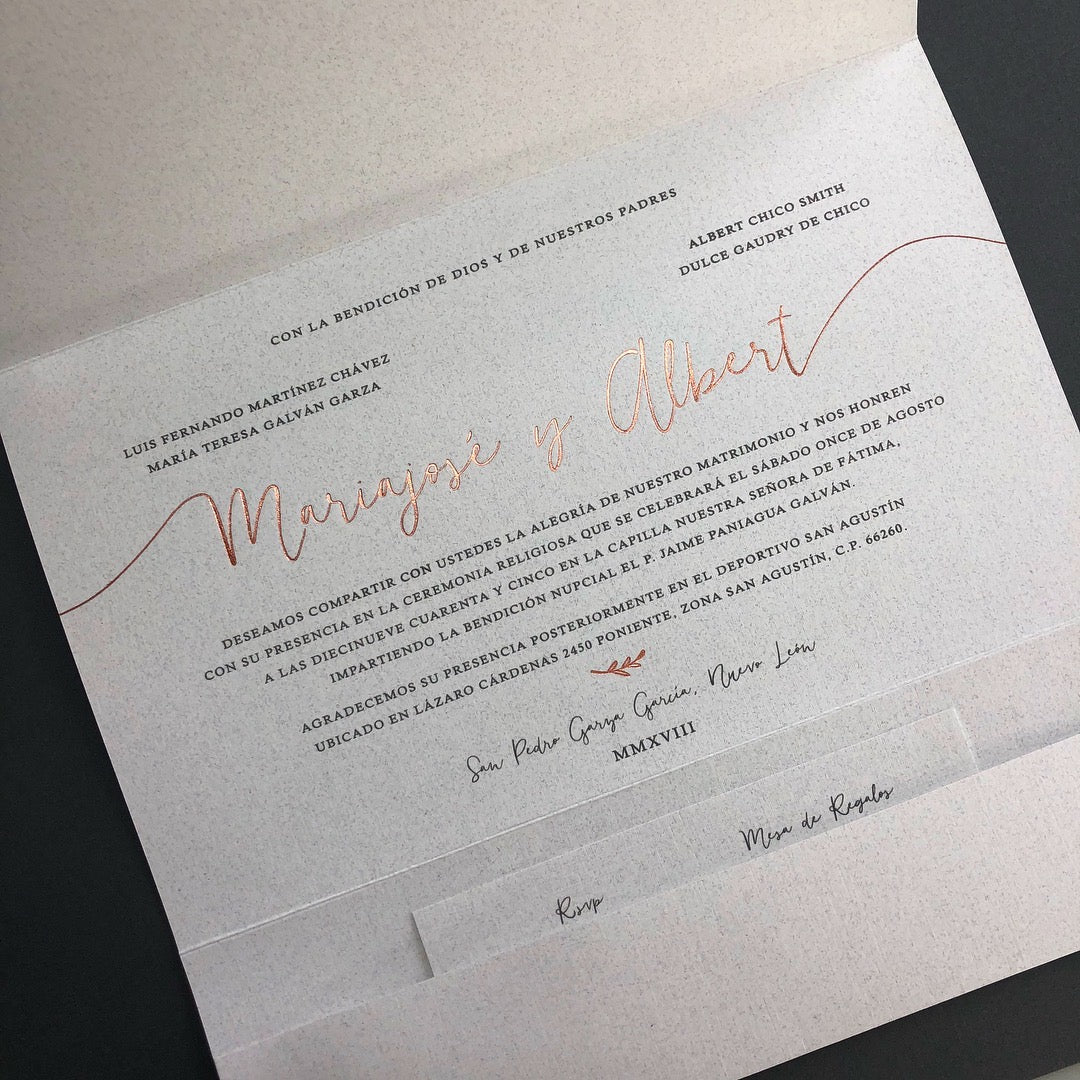 CON LA BENDICIÓN DE DIOS Y DE NUESTROS PADRES
LUIS FERNANDO MARTÍNEZ CHÁVEZ
MARÍA TERESA GALVÁN GARZA
ALBERT CHICO SMITH
DULCE GAUDRY DE CHICO
Mariajosé y Albert
DESEAMOS COMPARTIR CON USTEDES LA ALEGRÍA DE NUESTRO MATRIMONIO Y NOS HONREN
CON SU PRESENCIA EN LA CEREMONIA RELIGIOSA QUE SE CELEBRARÁ EL SÁBADO ONCE DE AGOSTO
A LAS DIECINUEVE CUARENTA Y CINCO EN LA CAPILLA NUESTRA SEÑORA DE FÁTIMA,
IMPARTIENDO LA BENDICIÓN NUPCIAL EL P. JAIME PANIAGUA GALVÁN.
AGRADECEMOS SU PRESENCIA POSTERIORMENTE EN EL DEPORTIVO SAN AGUSTÍN
UBICADO EN LÁZARO CÁRDENAS 2450 PONIENTE, ZONA SAN AGUSTÍN, C.P. 66260.
San Pedro Garza García, Nuevo León
MMXVIII
Rsvp
Mesa de Regalos